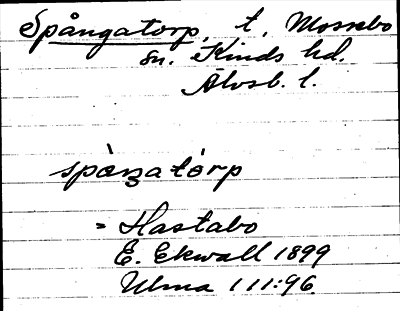 Spångatorp, t, Mossebo
sn. Kinds hd.
Älvsb. l.
spàŋatórp
= Hastabo
E. Ekwall 1899
Ulma 111:96.